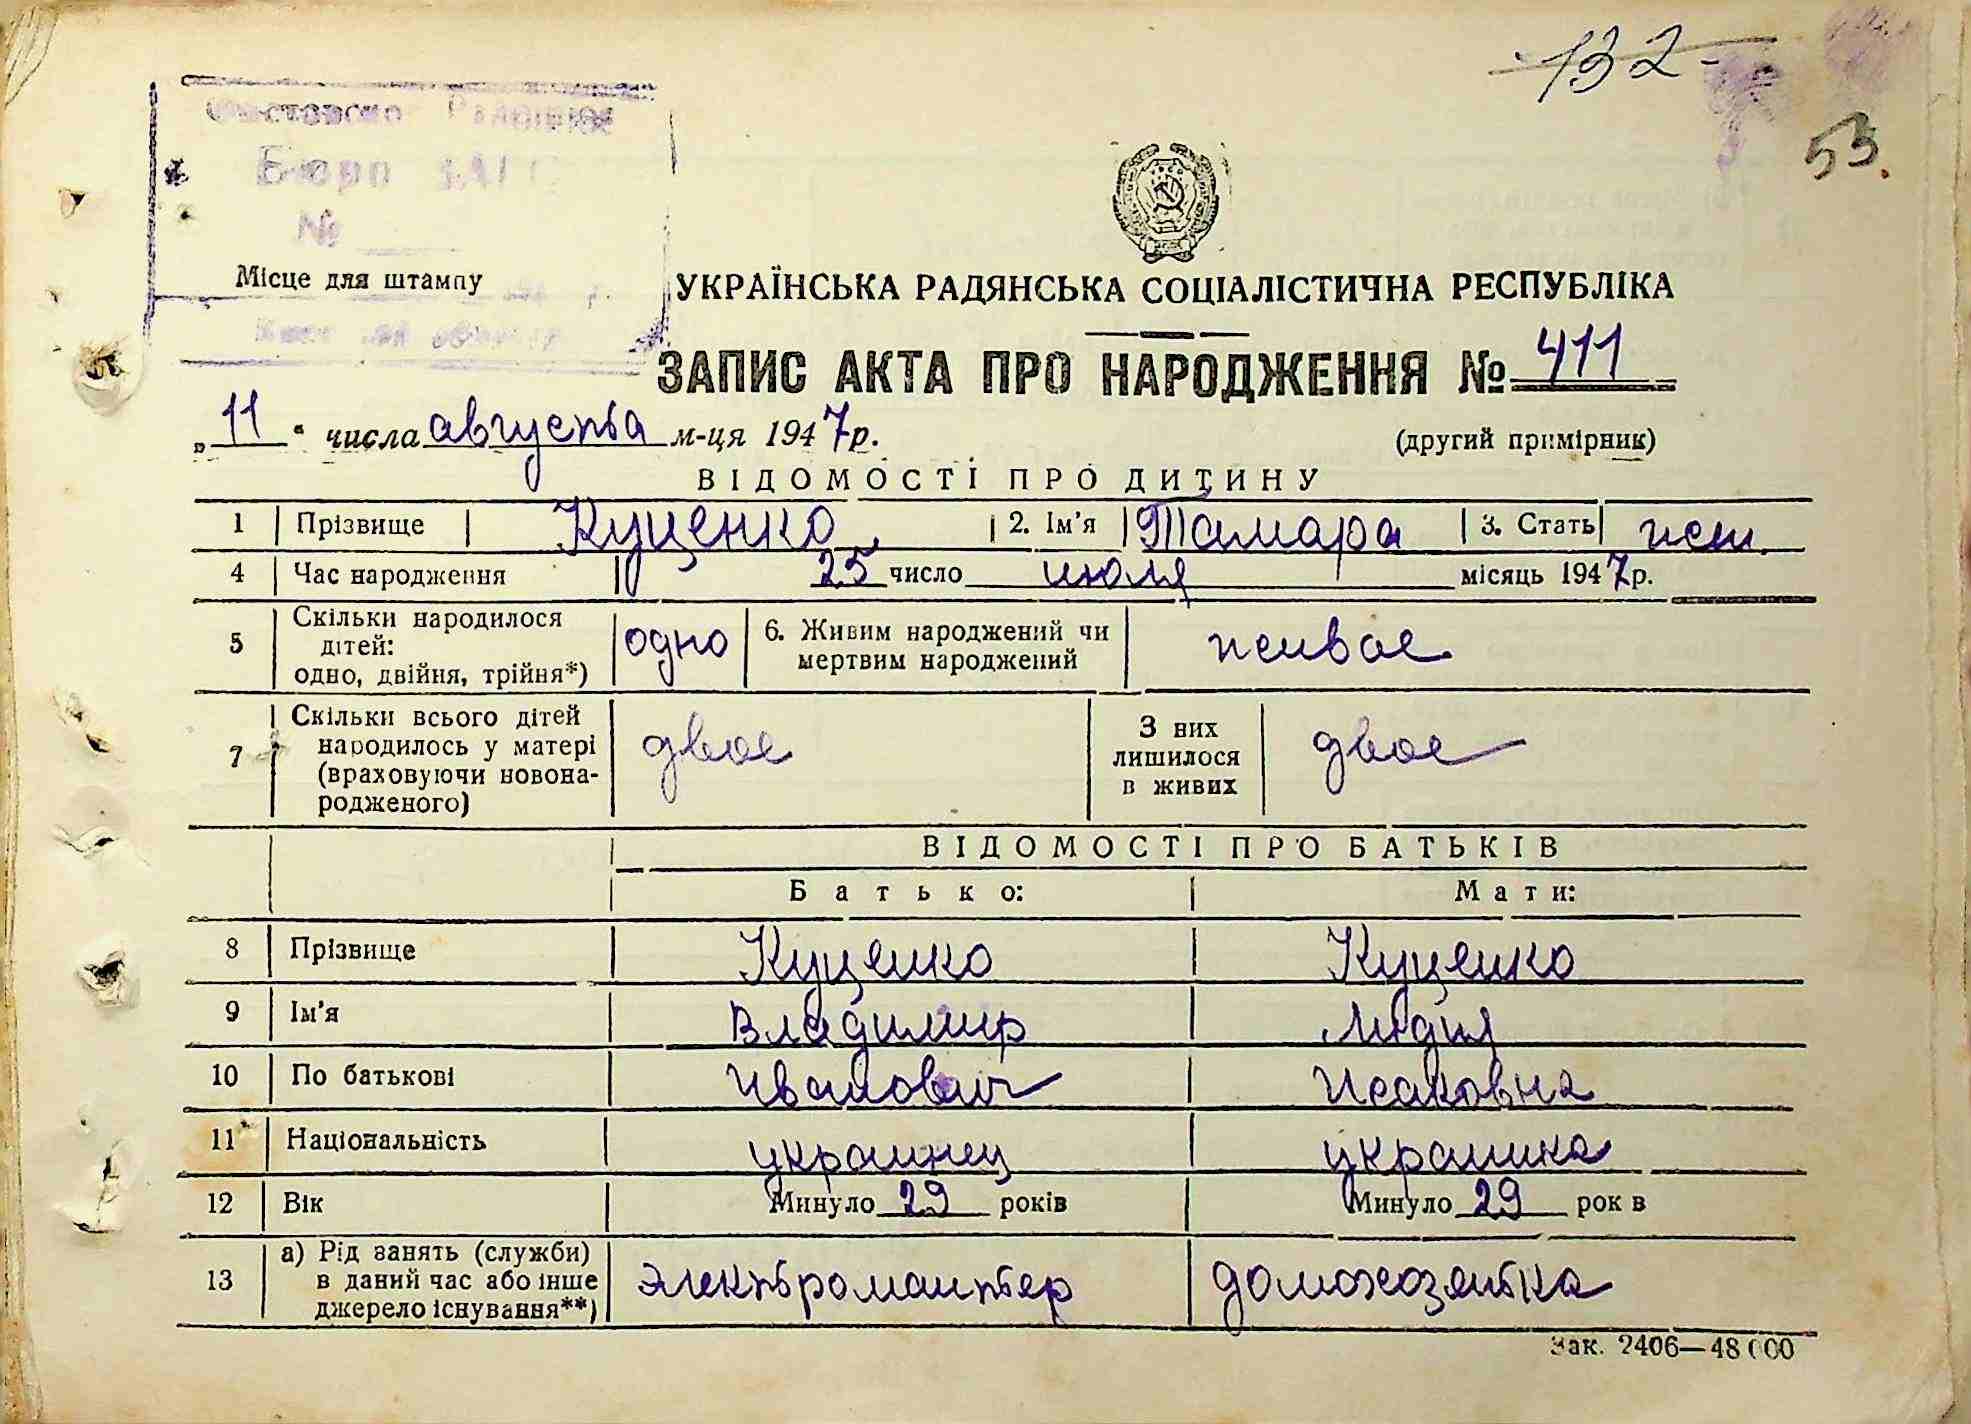 132
53.
Бюро ЗАГС
№
Місце для штампу
УКРАЇНСЬКА РАДЯНСЬКА СОЦІАЛІСТИЧНА РЕСПУБЛІКА
ЗАПИС АКТА ПРО НАРОДЖЕННЯ № 411
„11“ числа августа м-ця 1947р.
(другий примірник)
ВІДОМОСТІ ПРО ДИТИНУ
1 Прізвище Куценко 2. Ім'я Тамара 3. Стать жен.
4 Час народження 25 число июля місяць 1947р.
5 Скільки народилося дітей: одно, двійня, трійня*) одно 6. Живим народжений чи мертвим народжений живое
7 Скільки всього дітей народилось у матері (враховуючи новонародженого) двое З них лишилося в живих двое
ВІДОМОСТІ ПРО БАТЬКІВ
Батько: Мати:
8 Прізвище Куценко Куценко
9 Ім'я Владимир Лидия
10 По батькові Иванович Исаковна
11 Національність украинец украинка
12 Вік Минуло 29 років Минуло 29 рок в
13 а) Рід занять (служби) в даний час або інше джерело існування**) электромантер домохозяйка
Зак. 2406—48000